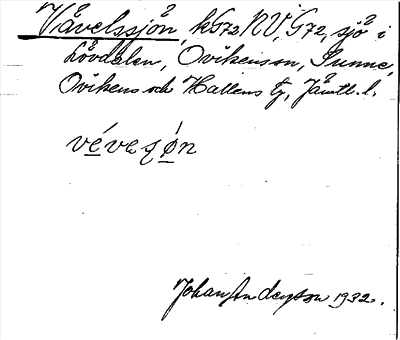 Våvelssjön, kG72 NV, G72, sjö i
Lövdalen, Ovikenson, Sunne,
Ovikens och Hallens tg, Jämtl. l.
vévesøn
Johan Anderson 1932.